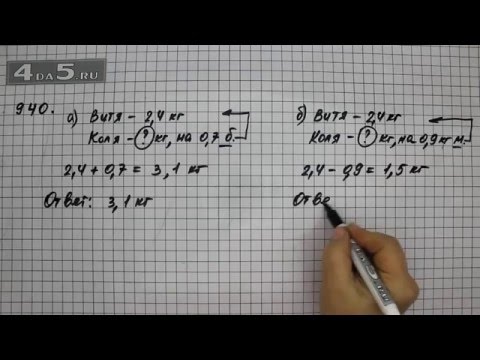 4DA5.RU
940.
а) Витя – 2,4 кг
Коля – ? кг, на 0,7 б.
2,4 + 0,7 = 3,1 кг
Ответ: 3,1 кг
б) Витя – 2,4 кг
Коля – ? кг, на 0,9 кг м.
2,4 – 0,9 = 1,5 кг
Отве